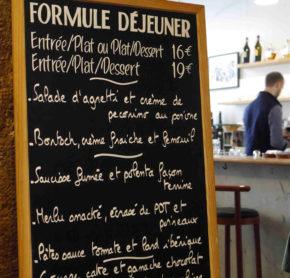 FORMULE DÉJEUNER
Entrée/Plat ou Plat/Dessert 16€
Entrée/Plat/Dessert 19€
- Salade d'agretti et crème de
pecorino au poivre
- Bortsch, crème fraîche et fenouil
- Saucisse fumée et polenta façon
terrine
- Merlu snacké, écrasé de PDT et
poireaux
- Pâtes sauce tomate et lard ibérique
cake et ganache chocolat